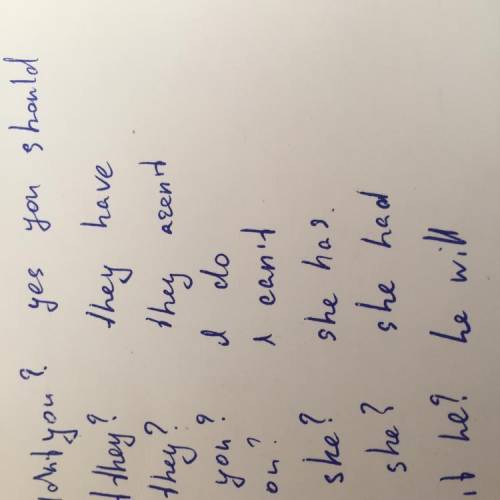 you? yes you should
they? they have
they? they aren't
you? I do
I can't
she? she has.
she? she had
he? he will